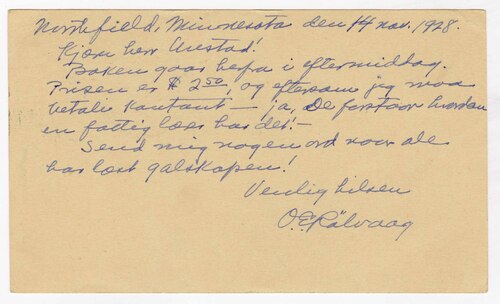 Northfield, Minnesota den 14 nov. 1928.
Kjære herr Aarestad!
Boken gaar herfra i eftermiddag.
Prisen er $ 2.50, og eftersom jeg maa
betale kontant — ja, De forstaar hvordan
en fattig læs har det! —
Send mig nogen ord naar alle
har læst galskapen!
Venlig hilsen
O.E. Rølvaag